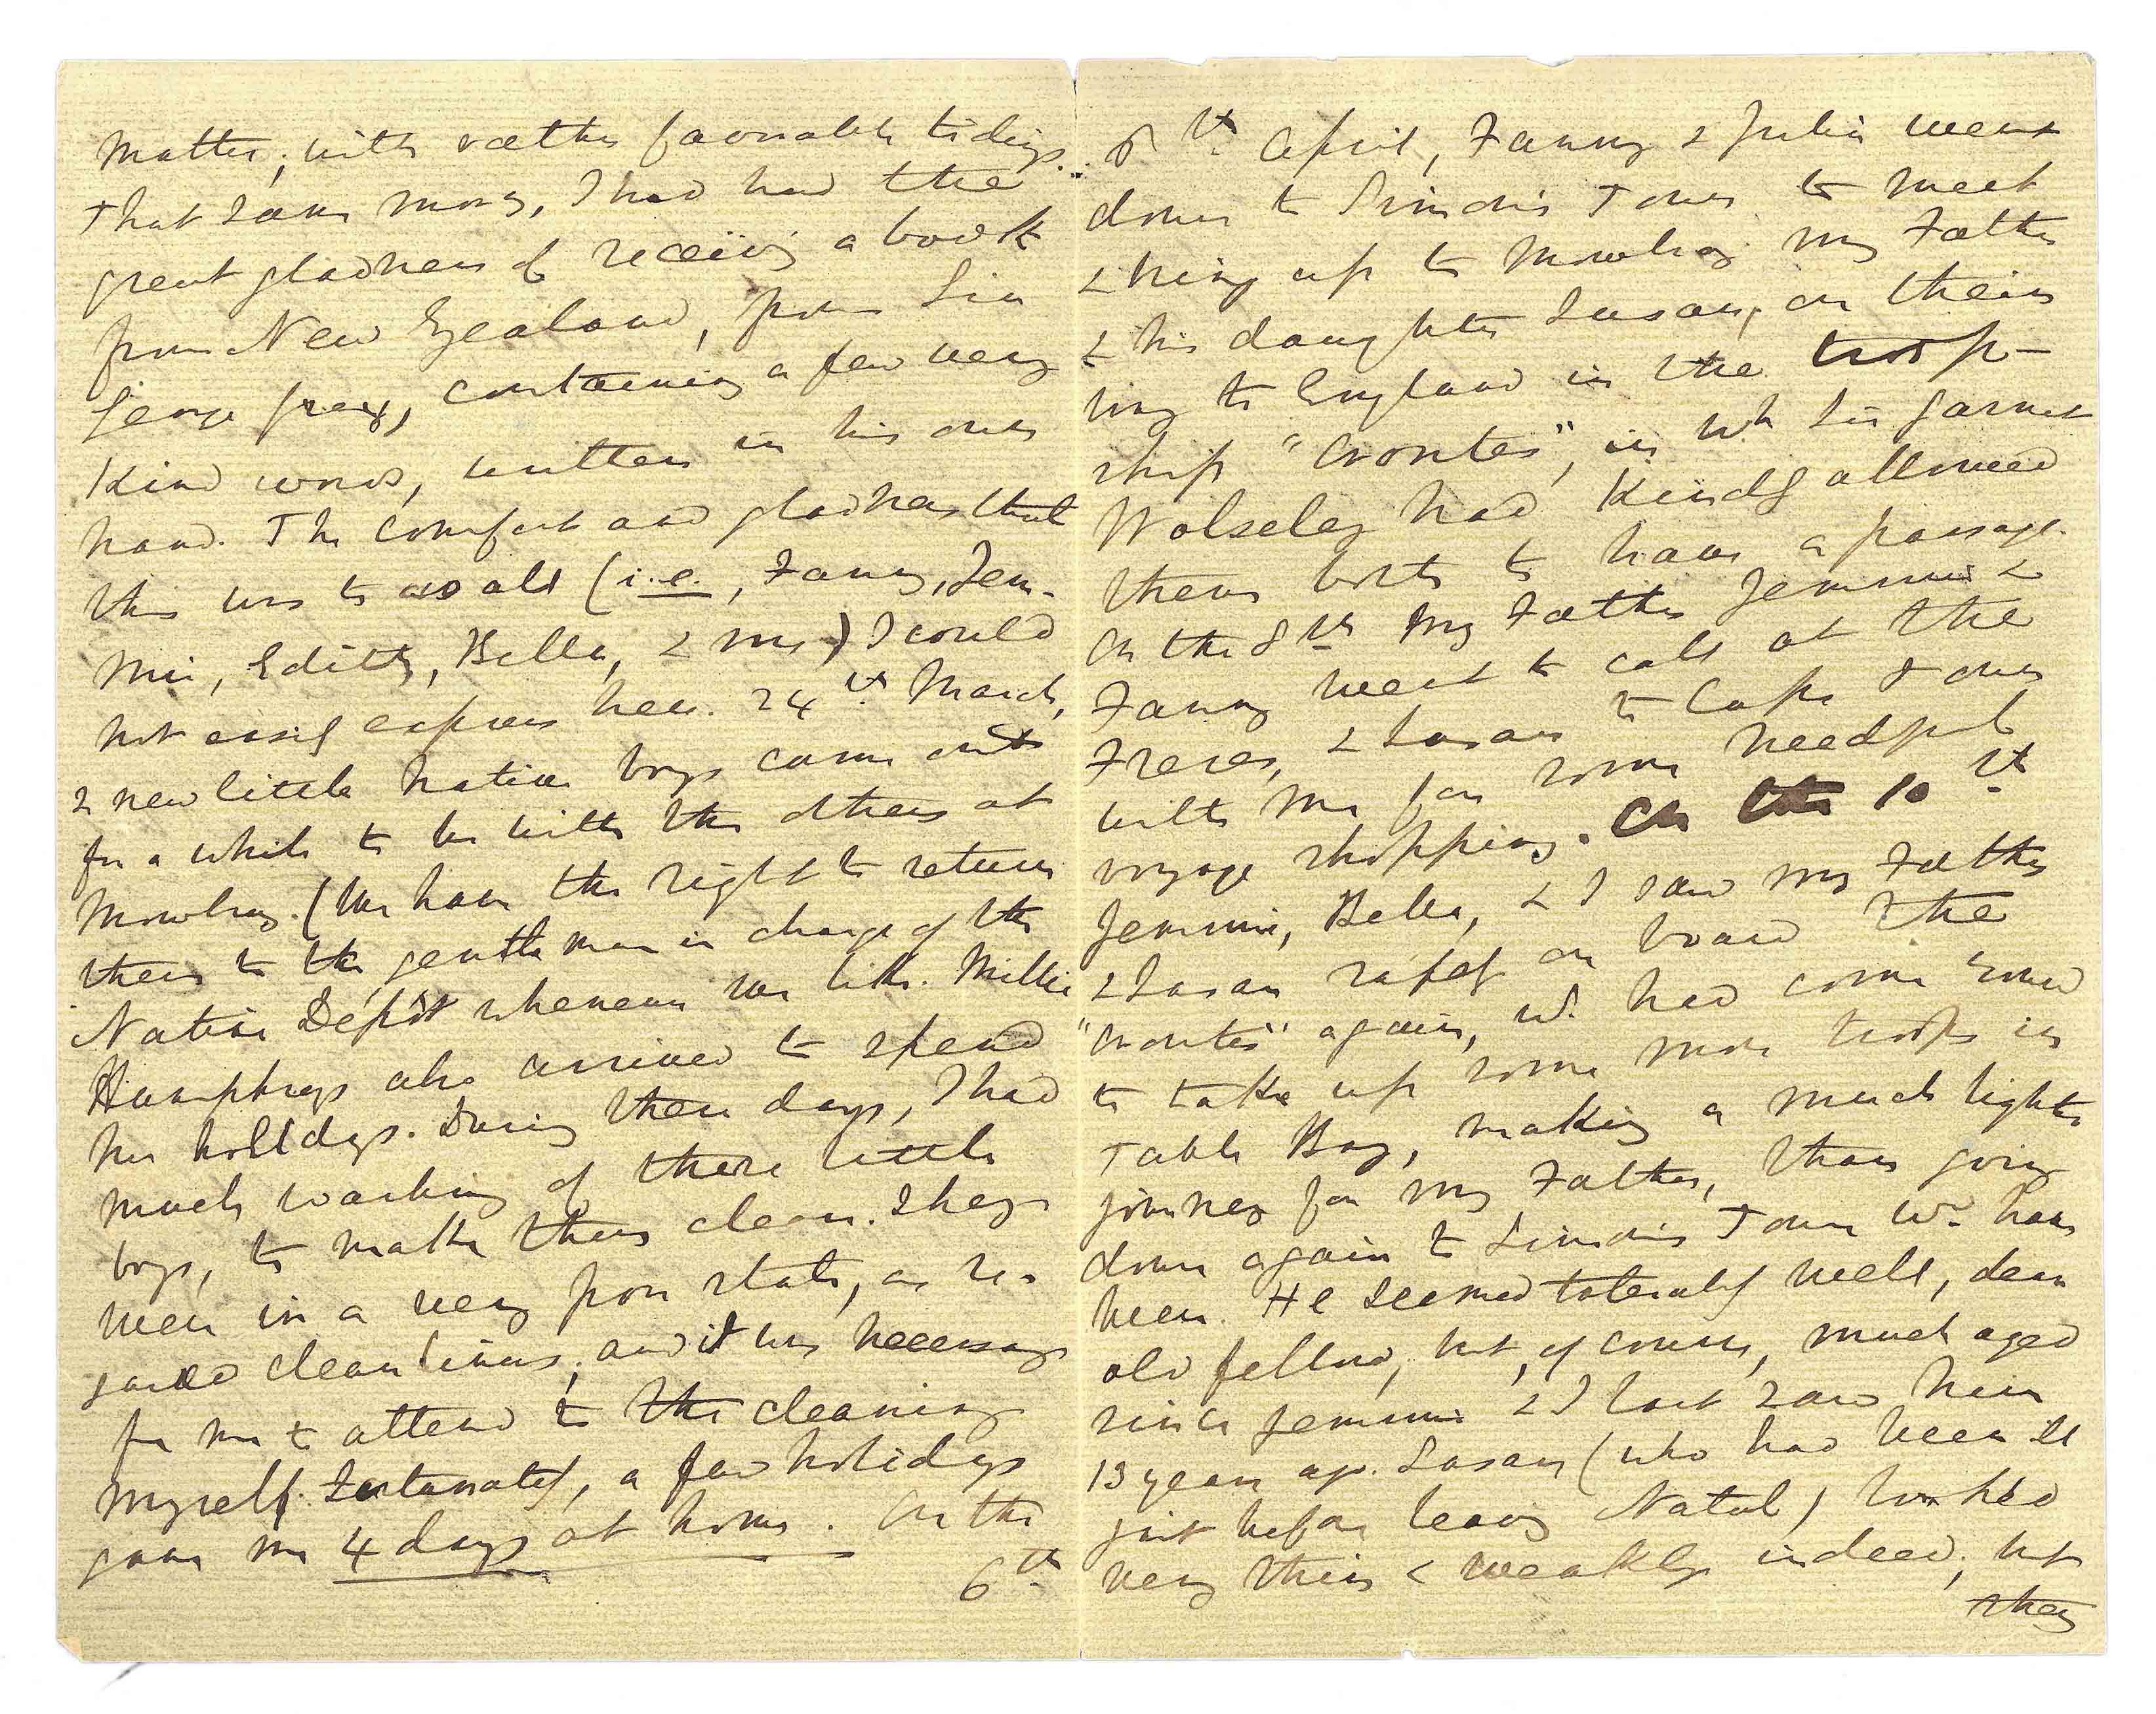 matter; with rather favorable tidings.
That same morng, I had had the
great gladness of receiving a book
from New Zealand, from Sir
George Grey, containing a few very
kind words, written in his own
hand. The comfort and gladness that
this was to us all (i.e., Fanny, Jem-
mie, Edith, Bella, & me) I could
not easily express here. 24th March,
2 new little native boys came out
for a while to be with the others at
Mowbray. (We have the right to return
them to the gentleman in charge of the
Native Depôt whenever we like. Millie
Humphreys also arrived to spend
her holidays. During these days, I had
much washing of these little
boys, to make them clean. They
were in a very poor state, as re-
gards cleanliness; and it was necessary
for me to attend to the cleaning
myself. Fortunately, a few holidays
gave me 4 days at home. On the
6th
6th April, Fanny & Julia went
down to Simon's Town to meet
& bring up to Mowbray my Father
& his daughter Susan, on their
way to England in the troop-
ship "Orontes", in wh Sir Garnet
Wolseley had kindly allowed
them both to have a passage.
On the 8th my Father Jemmie &
Fanny went to call at the
Freres, & Susan to Cape Town
with me for some needful
voyage shopping. On the 10th
Jemmie, Bella, & I saw my Father
& Susan safely on board the
"Orontes" again, wh. had come round
to take up some more troops in
Table Bay, making a much lighter
journey for my Father, than going
down again to Simon's Town wd. have
been. He seemed tolerably well, dear
old fellow, but, of course, much aged
since Jemmie & I last saw him
13 years ago. Susan (who had been ill
just before leaving Natal) looked
very thin & weakly indeed; but
they